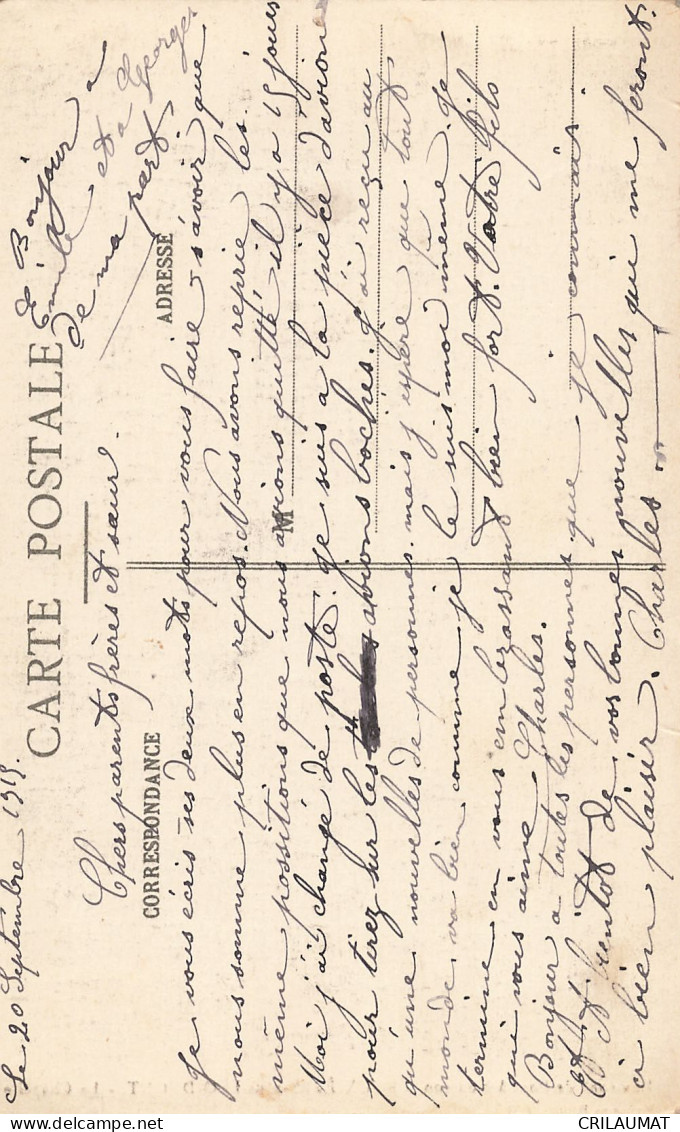 Le 20 Septembre 1915.
CARTE POSTALE
& Bonjour a
Emile et a George
de ma part
Chers parents frères et sœur.
CORRESPONDANCE
ADRESSE
M
Je vous écris ses deux mots pour vous faire s'avoir que
nous somme plus en repos. Nous avons reprie les
même possitions que nous avions quitté il y a 15 jours
Moi j'ai changé de poste. Je suis a la pièce d'avion
pour tirez sur les avions boches. J'ai reçu au
qu'une nouvelles de personnes. mais j'espère que tout
monde va bien comme je le suis moi même. Je
termine en vous embrassant bien fort. Votre fils
qui vous aime Charles.
Bonjour a toutes les personnes que je connais.
Et A bientot de vos bonnes nouvelles qui me feront
a bien plaisir. Charles
CRILAUMAT